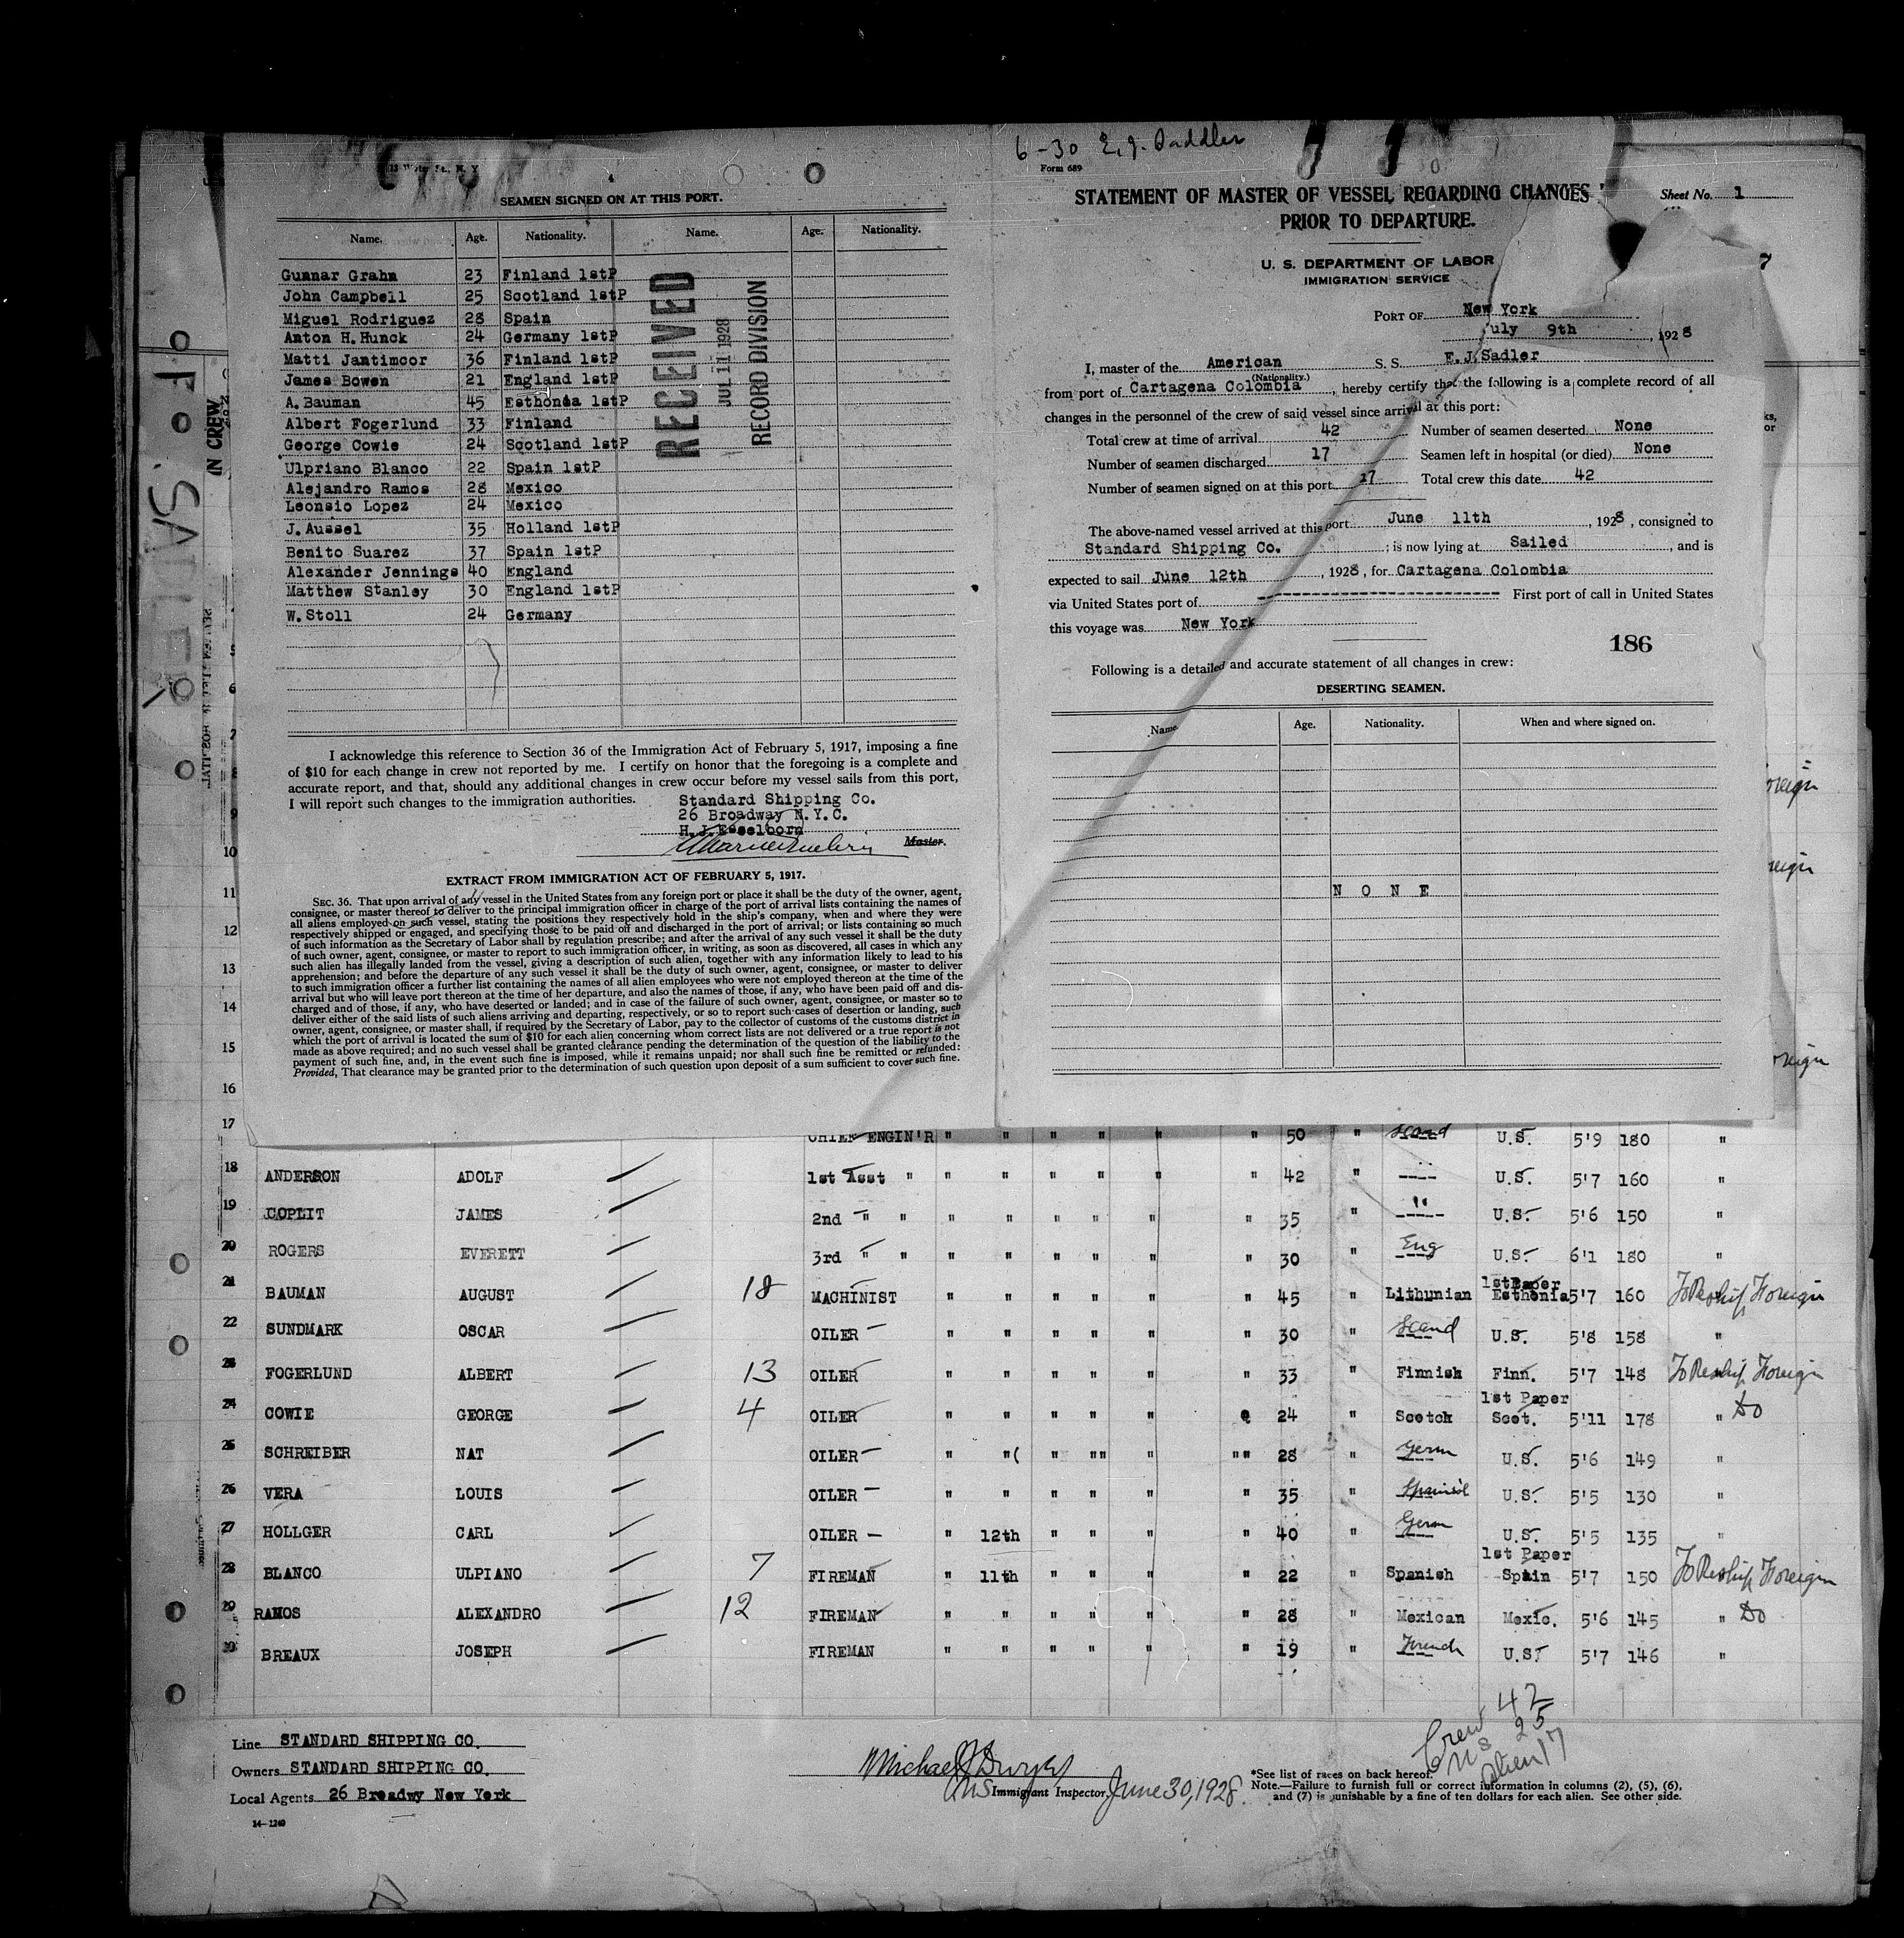 SEAMEN SIGNED ON AT THIS PORT.
Name. Age. Nationality. Name. Age. Nationality.
Gunnar Grahn 23 Finland 1stP
John Campbell 25 Scotland 1stP
Miguel Rodriguez 28 Spain
Anton H. Hunck 24 Germany 1stP
Matti Jantimoor 36 Finland 1stP
James Bowen 21 England 1stP
A. Bauman 45 Esthonia 1stP
Albert Fogerlund 33 Finland
George Cowie 24 Scotland 1stP
Ulpriano Blanco 22 Spain 1stP
Alejandro Ramos 28 Mexico
Leonsio Lopez 24 Mexico
J. Aussel 35 Holland 1stP
Benito Suarez 37 Spain 1stP
Alexander Jennings 40 England
Matthew Stanley 30 England 1stP
W. Stoll 24 Germany
RECEIVED
JUL 11 1928
RECORD DIVISION
I acknowledge this reference to Section 36 of the Immigration Act of February 5, 1917, imposing a fine
of $10 for each change in crew not reported by me. I certify on honor that the foregoing is a complete and
accurate report, and that, should any additional changes in crew occur before my vessel sails from this port,
I will report such changes to the immigration authorities.
Standard Shipping Co.
26 Broadway N.Y.C.
H. J. Esselborn
Master.
EXTRACT FROM IMMIGRATION ACT OF FEBRUARY 5, 1917.
SEC. 36. That upon arrival of any vessel in the United States from any foreign port or place it shall be the duty of the owner, agent,
consignee, or master thereof to deliver to the principal immigration officer in charge of the port of arrival lists containing the names of
all aliens employed on such vessel, stating the positions they respectively hold in the ship's company, when and where they were
respectively shipped or engaged, and specifying those to be paid off and discharged in the port of arrival; or lists containing so much
of such information as the Secretary of Labor shall by regulation prescribe; and after the arrival of any such vessel it shall be the duty
of such owner, agent, consignee, or master to report to such immigration officer, in writing, as soon as discovered, all cases in which any
such alien has illegally landed from the vessel, giving a description of such alien, together with any information likely to lead to his
apprehension; and before the departure of any such vessel it shall be the duty of such owner, agent, consignee, or master to deliver
to such immigration officer a further list containing the names of all alien employees who were not employed thereon at the time of the
arrival but who will leave port thereon at the time of her departure, and also the names of those, if any, who have been paid off and dis-
charged and of those, if any, who have deserted or landed; and in case of the failure of such owner, agent, consignee, or master so to
deliver either of the said lists of such aliens arriving and departing, respectively, or so to report such cases of desertion or landing, such
owner, agent, consignee, or master shall, if required by the Secretary of Labor, pay to the collector of customs of the customs district in
which the port of arrival is located the sum of $10 for each alien concerning whom correct lists are not delivered or a true report is not
made as above required; and no such vessel shall be granted clearance pending the determination of the question of the liability to the
payment of such fine, and, in the event such fine is imposed, while it remains unpaid; nor shall such fine be remitted or refunded:
Provided, That clearance may be granted prior to the determination of such question upon deposit of a sum sufficient to cover such fine.
6-30 E. J. Saddler
Form 689
STATEMENT OF MASTER OF VESSEL REGARDING CHANGES
PRIOR TO DEPARTURE.
Sheet No. 1
U. S. DEPARTMENT OF LABOR
IMMIGRATION SERVICE
PORT OF New York
July 9th, 1928
I, master of the American S. S. E.J.Sadler
(Nationality.)
from port of Cartagena Colombia, hereby certify that the following is a complete record of all
changes in the personnel of the crew of said vessel since arrival at this port:
Total crew at time of arrival 42 Number of seamen deserted None
Number of seamen discharged 17 Seamen left in hospital (or died) None
Number of seamen signed on at this port 17 Total crew this date 42
The above-named vessel arrived at this port June 11th, 1928, consigned to
Standard Shipping Co.; is now lying at Sailed, and is
expected to sail June 12th, 1928, for Cartagena Colombia
via United States port of ---------- First port of call in United States
this voyage was New York
186
Following is a detailed and accurate statement of all changes in crew:
DESERTING SEAMEN.
Name. Age. Nationality. When and where signed on.
N O N E
SADLER
IN CREW
6
7
9
10
11
12
13
14
15
16
17 CHIEF ENGIN'R " " " " " " 50 " Scand U.S. 5'9 180 "
18 ANDERSON ADOLF 1st Asst " " " " " " " 42 " ---- U.S. 5'7 160 "
19 COPLIT JAMES 2nd " " " " " " " " 35 " " U.S. 5'6 150 "
20 ROGERS EVERETT 3rd " " " " " " " " 30 " Eng U.S. 6'1 180 "
21 BAUMAN AUGUST 18 MACHINIST " " " " " " 45 " Lithunian 1stPaper Esthonia 5'7 160 To Reship Foreign
22 SUNDMARK OSCAR OILER " " " " " " 30 " Scand U.S. 5'8 158 "
23 FOGERLUND ALBERT 13 OILER " " " " " " 33 " Finnish Finn. 5'7 148 To Reship Foreign
24 COWIE GEORGE 4 OILER " " " " " 24 " Scotch 1st Paper Scot. 5'11 178 " Do
25 SCHREIBER NAT OILER " "( " "" " "" 28 " Germ U.S. 5'6 149 "
26 VERA LOUIS OILER " " " " " " 35 " Spanish U.S. 5'5 130 "
27 HOLLGER CARL OILER " 12th " " " " 40 " Germ U.S. 5'5 135 "
28 BLANCO ULPIANO 7 FIREMAN " 11th " " " " 22 " Spanish 1st Paper Spain 5'7 150 To Reship Foreign
29 RAMOS ALEXANDRO 12 FIREMAN " " " " " " 28 " Mexican Mexic. 5'6 145 " Do
30 BREAUX JOSEPH FIREMAN " " " " " " 19 " French U.S. 5'7 146 "
Crew 42
US 25
Alien 17
Line STANDARD SHIPPING CO.
Owners STANDARD SHIPPING CO.
Local Agents 26 Broadwy New York
14-1240
Michael J Dwyer
US Immigrant Inspector. June 30, 1928.
*See list of races on back hereof.
Note.—Failure to furnish full or correct information in columns (2), (5), (6),
and (7) is punishable by a fine of ten dollars for each alien. See other side.